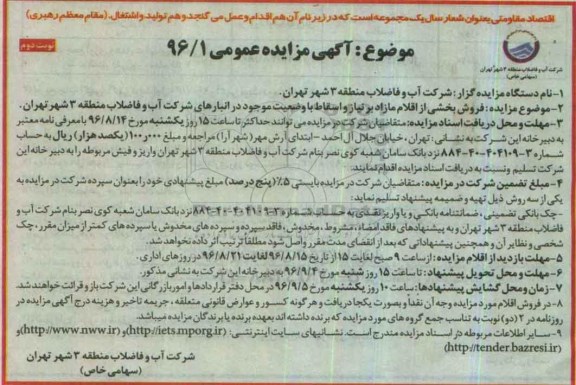 اقتصاد مقاومتی بعنوان شعار سال یک مجموعه است که در زیر نام آن هم اقدام و عمل می گنجد و هم تولید و اشتغال. (مقام معظم رهبری)
نوبت دوم
موضوع : آگهی مزایده عمومی ۹۶/۱
شرکت آب و فاضلاب منطقه ۳ شهر تهران
(سهامی خاص)
۱- نام دستگاه مزایده گزار: شرکت آب و فاضلاب منطقه ۳ شهر تهران.
۲- موضوع مزایده : فروش بخشی از اقلام مازاد بر نیاز و اسقاط با وضعیت موجود در انبارهای شرکت آب و فاضلاب منطقه ۳ شهر تهران.
۳- مهلت و محل دریافت اسناد مزایده: متقاضیان شرکت در مزایده می توانند حداکثر تا ساعت ۱۵ روز یکشنبه مورخ ۹۶/۸/۱۴ با معرفی نامه معتبر
به دبیرخانه این شرکت به نشانی : تهران ، خیابان جلال آل احمد – ابتدای آرش مهر( شهرآرا) مراجعه و مبلغ ۱۰۰٫۰۰۰ (یکصد هزار) ریال به حساب
شماره ۳-۴۰۴۱۰۹-۴۰-۸۸۴ نزد بانک سامان شعبه کوی نصر بنام شرکت آب و فاضلاب منطقه ۳ شهر تهران واریز و فیش مربوطه را به دبیرخانه این
شرکت تسلیم ونسبت به دریافت اسناد مزایده اقدام نمایند.
۴- مبلغ تضمین شرکت در مزایده : متقاضیان شرکت در مزایده بایستی ۵٪ (پنج درصد) مبلغ پیشنهادی خود را بعنوان سپرده شرکت در مزایده به
یکی از سه روش ذیل تهیه و ضمیمه پیشنهاد تسلیم نماید:
- چک بانکی تضمینی ، ضمانتنامه بانکی و یا واریز نقدی به حساب شماره ۳-۴۰۴۱۰۹-۴۰-۸۸۴ نزد بانک سامان شعبه کوی نصر بنام شرکت آب و
فاضلاب منطقه ۳ شهر تهران و به پیشنهادهای فاقد امضاء، مشروط ، مخدوش ، فاقد سپرده و سپرده های مخدوش یا سپرده های کمتر از میزان مقرر، چک
شخصی و نظایر آن و همچنین پیشنهاداتی که بعد از انقضای مدت مقرر واصل شود مطلقا ترتیب اثر داده نخواهد شد.
۵- مهلت بازدید از اقلام مزایده : از ساعت ۹ صبح لغایت ۱۵ از تاریخ ۹۶/۸/۱۵ لغایت ۹۶/۸/۲۱ در روزهای اداری.
۶- مهلت و محل تحویل پیشنهاد: تا ساعت ۱۵ روز شنبه مورخ ۹۶/۹/۴ به دبیرخانه این شرکت به نشانی مذکور.
۷- زمان و محل گشایش پیشنهادها: ساعت ۱۰ روز یکشنبه مورخ ۹۶/۹/۵ در محل دفتر قراردادها و امور بازرگانی این شرکت باز و قرائت خواهند شد.
۸- در فروش اقلام مورد مزایده وجه آن نقدا و بصورت یکجا دریافت و هر گونه کسور و عوارض قانونی متعلقه ، جریمه تاخیر و هزینه درج آگهی مزایده در
روزنامه در ۲ (دو) نوبت به تناسب جمع گروه های مورد مزایده که برنده داشته اند بعهده برنده یا برندگان مزایده میباشد.
۹- سایر اطلاعات مربوطه در اسناد مزایده مندرج است. نشانیهای سایت اینترنتی: (http://iets.mporg.ir) و (http://www.nww.ir) و
(http://tender.bazresi.ir)
شرکت آب و فاضلاب منطقه ۳ شهر تهران
(سهامی خاص)